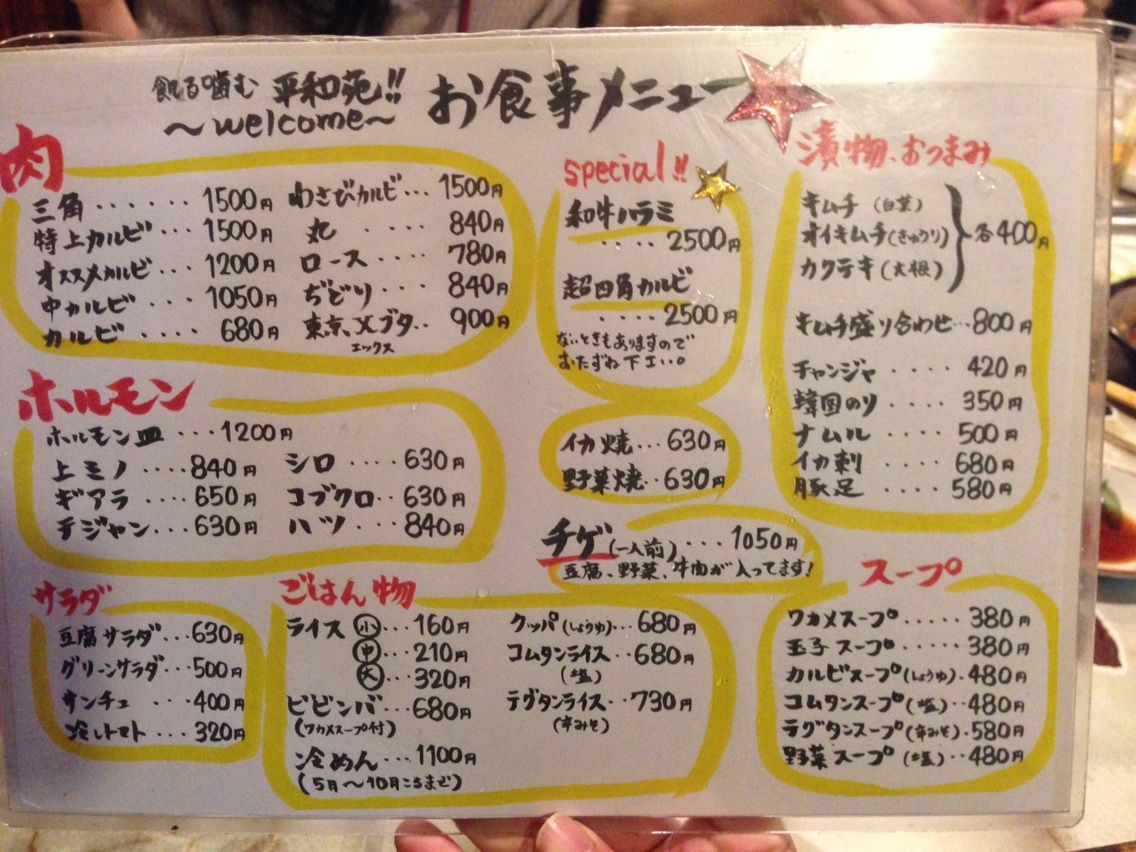 飢える噛む 平和苑!! お食事メニュー
～welcome～
肉
三角 ...... 1500円
特上カルビ ... 1500円
オススメカルビ ... 1200円
中カルビ .... 1050円
カルビ .... 680円
わさびカルビ... 1500円
丸 ..... 840円
ロース ..... 780円
ぢどり .... 840円
東京、Xブタ.. 900円
エックス
special!!
和牛ハラミ
.... 2500円
超四角カルビ
.... 2500円
ないときもありますので
おたずね下エい。
漬物、おつまみ
キムチ (白菜)
オイキムチ(きゅうり) 各400円
カクテキ(大根)
キムチ盛り合わせ...800円
チャンジャ .... 420円
韓国のり .... 350円
ナムル .... 500円
イカ刺 .... 680円
豚足 .... 580円
ホルモン
ホルモン皿 ... 1200円
上ミノ .... 840円
ギアラ .... 650円
テジャン... 630円
シロ .... 630円
コブクロ .. 630円
ハツ .... 840円
イカ焼 ... 630円
野菜焼.. 630円
チゲ(一人前) ... 1050円
豆腐、野菜、牛肉が入ってます!
サラダ
豆腐サラダ...630円
グリーンサラダ... 500円
サンチュ ... 400円
冷しトマト .. 320円
ごはん物
ライス 小... 160円
中... 210円
大... 320円
ビビンバ ... 680円
(ワカメスープ付)
冷めん ... 1100円
(5月～10月ころまで)
クッパ(しょうゆ)... 680円
コムタンライス..680円
(塩)
テグタンライス.. 730円
(辛みそ)
スープ
ワカメスープ..... 380円
玉子スープ ..... 380円
カルビスープ(しょうゆ). 480円
コムタンスープ(塩). 480円
テグタンスープ(辛みそ). 580円
野菜スープ (塩).. 480円